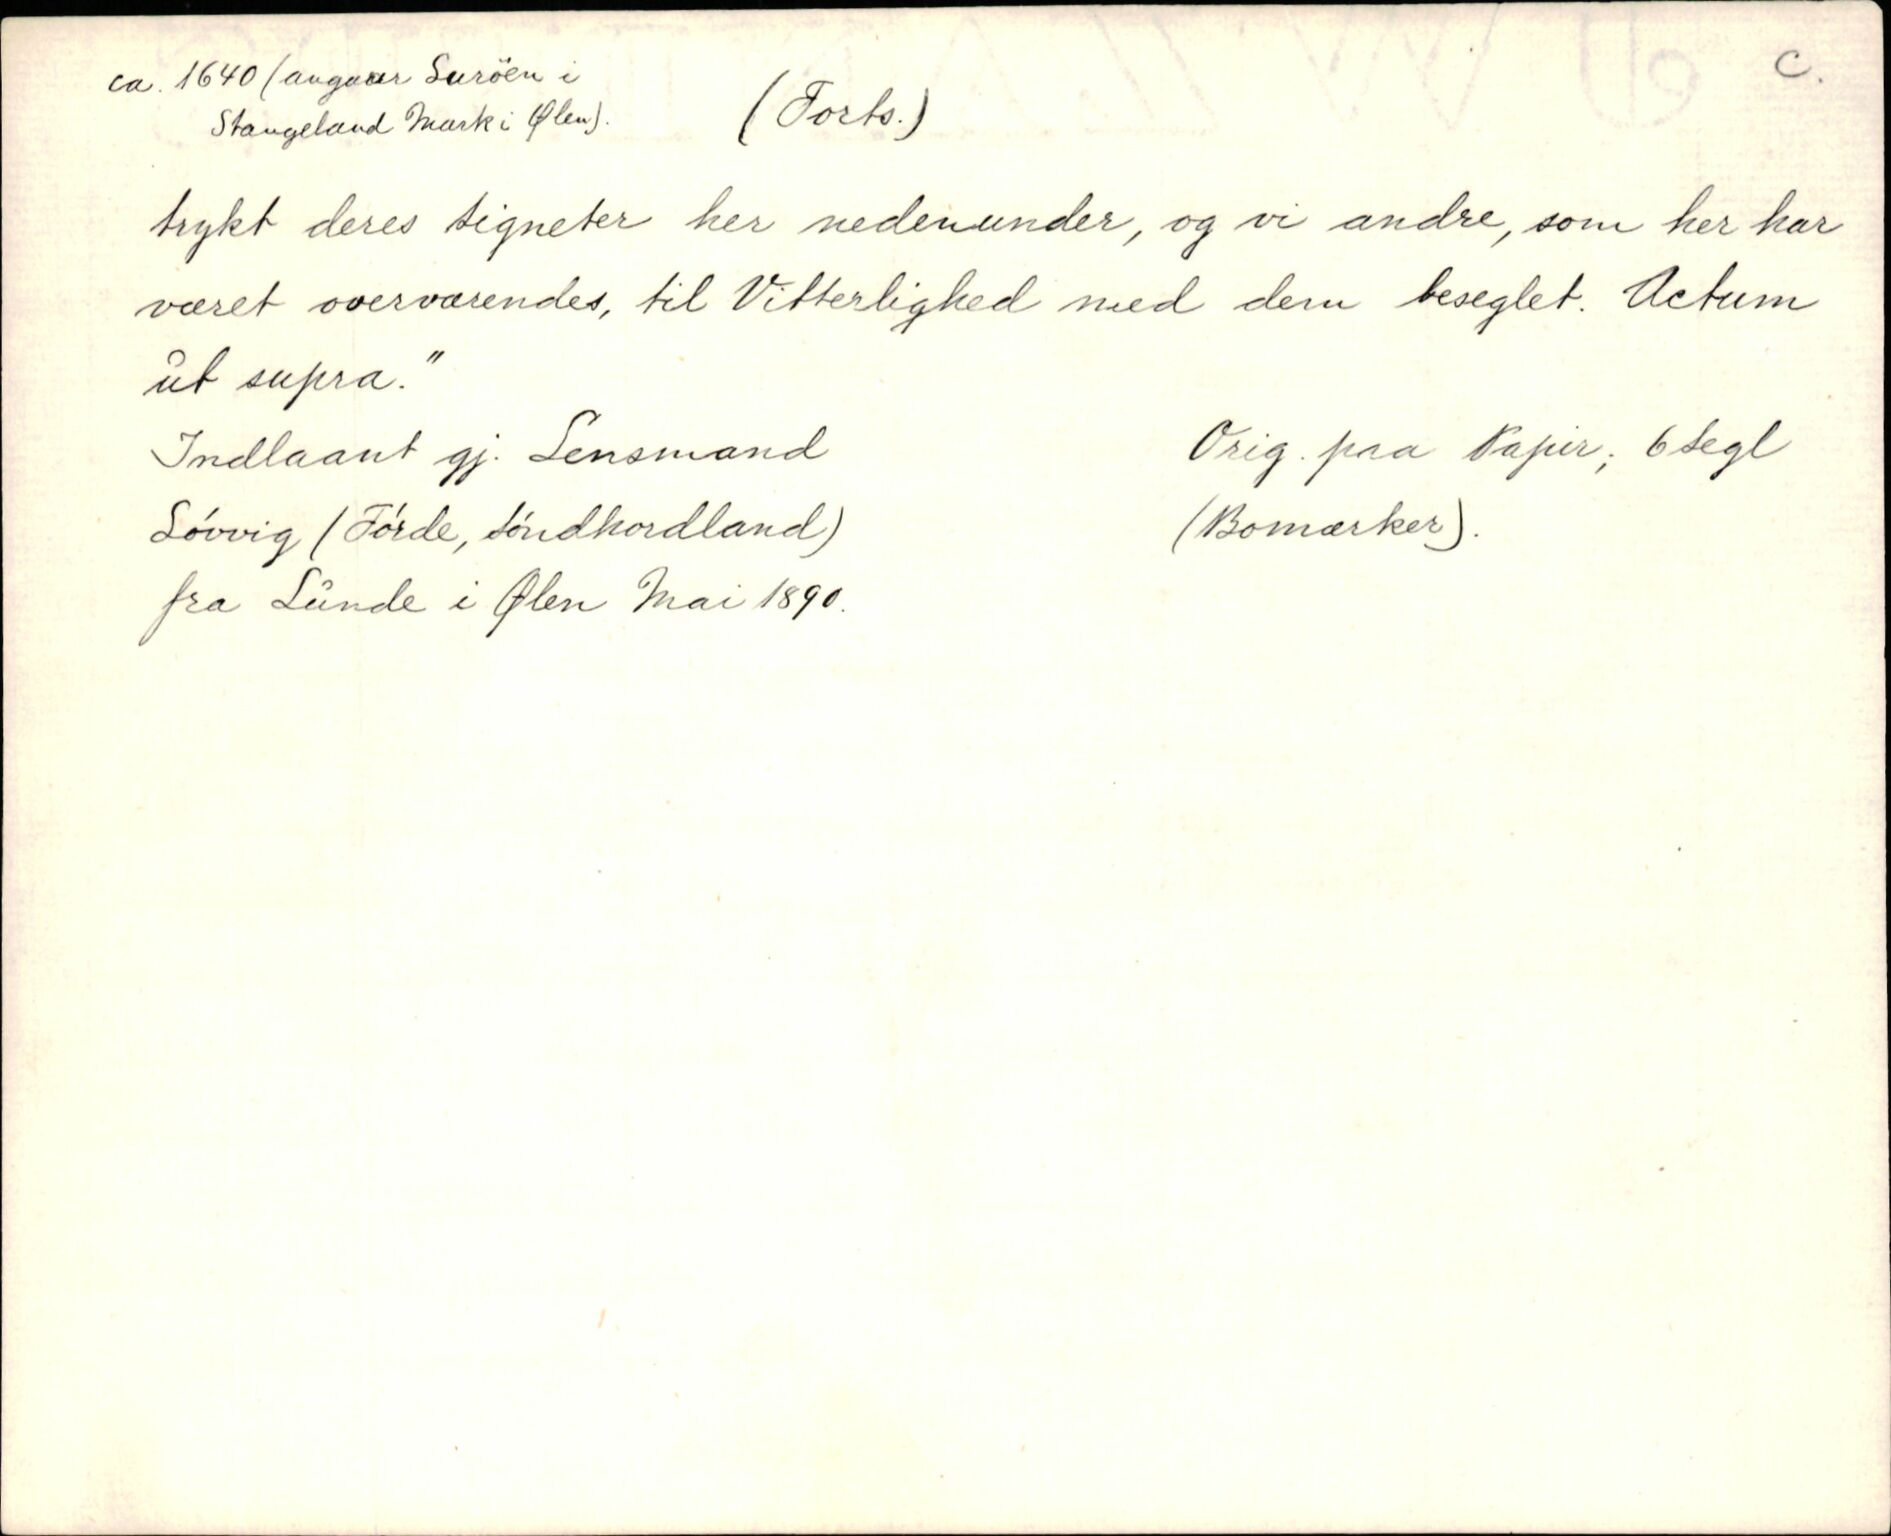 c.
ca. 1640 (angaar Suröen i
Stangeland Mark i Ølen).
(Forts.)
trykt deres signeter her nedenunder, og vi andre, som her har
været overværendes, til Vitterlighed med dem beseglet. Actum
ut supra."
Indlaant gj. Lensmand
Lövvig (Förde, Söndhordland)
fra Lunde i Ølen Mai 1890.
Orig. paa Papir; 6 Segl
(Bomærker).